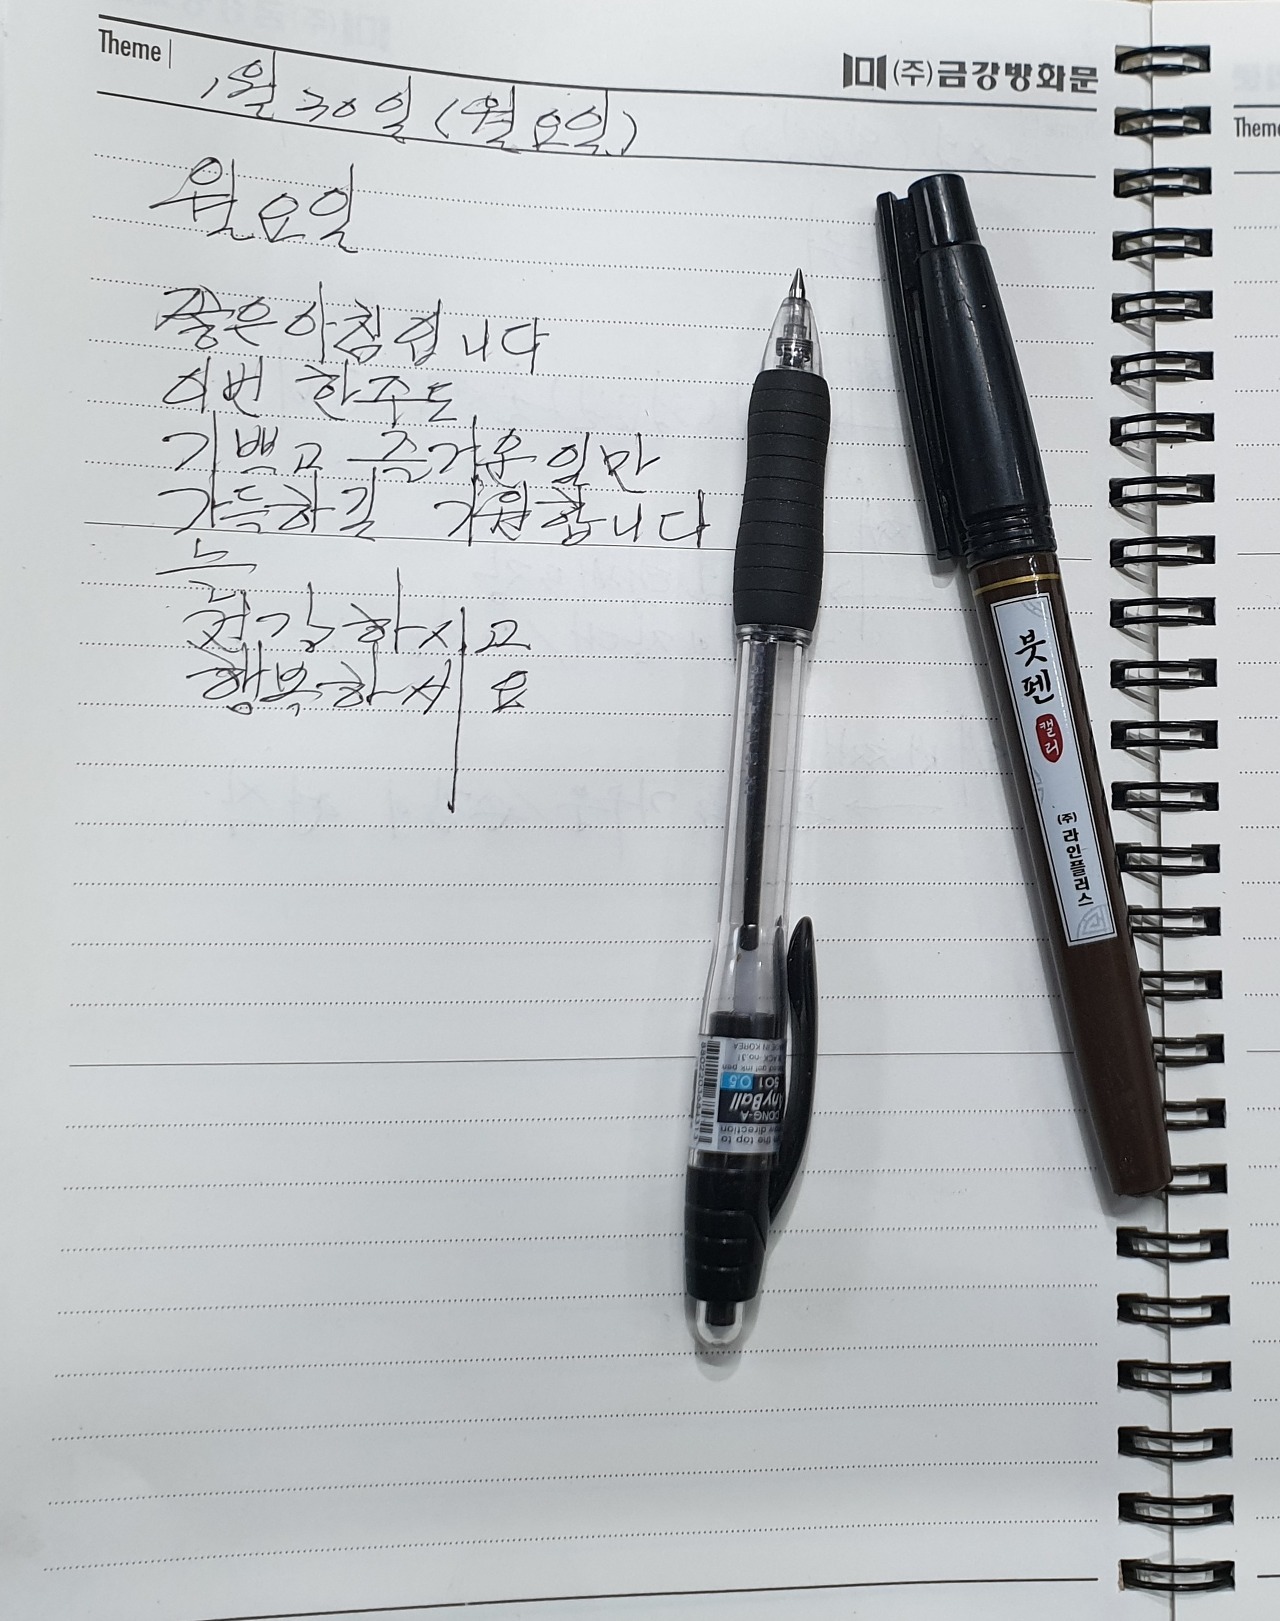 Theme |
(주)금강방화문
1월 30일 (월요일)
월요일
좋은아침입니다
이번 한주도
기쁘고 즐거운 일만
가득하길 기원합니다
늘
건강하시고
행복하세요
붓펜
캘리
(주)라인플러스
MADE IN KOREA
BLACK-no.31
gel ink pen
501 0.5
AnyBall
DONG-A
direction
the top to
Theme